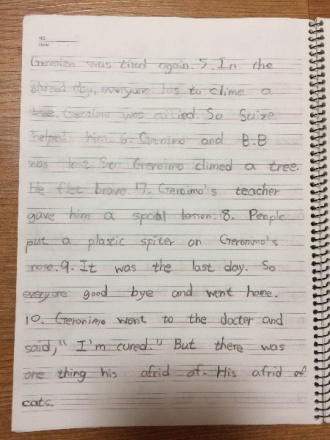 Geronimo was tired again. 5. In the
thread day, everyone has to clime a
tree. Geronimo was carried. So Suize
helped him. 6. Geronimo and B.B
was lost So Geronimo climed a tree.
He flet brave. 7. Geroimo's teacher
gave him a spcial lesson. 8. People
put a plastic spiter on Geronimo's
nose. 9. It was the last day. So
everyone good bye and went home.
10. Geronimo went to the docter and
said, "I'm cured." But there was
one thing his afrid of. His afrid of
cats.